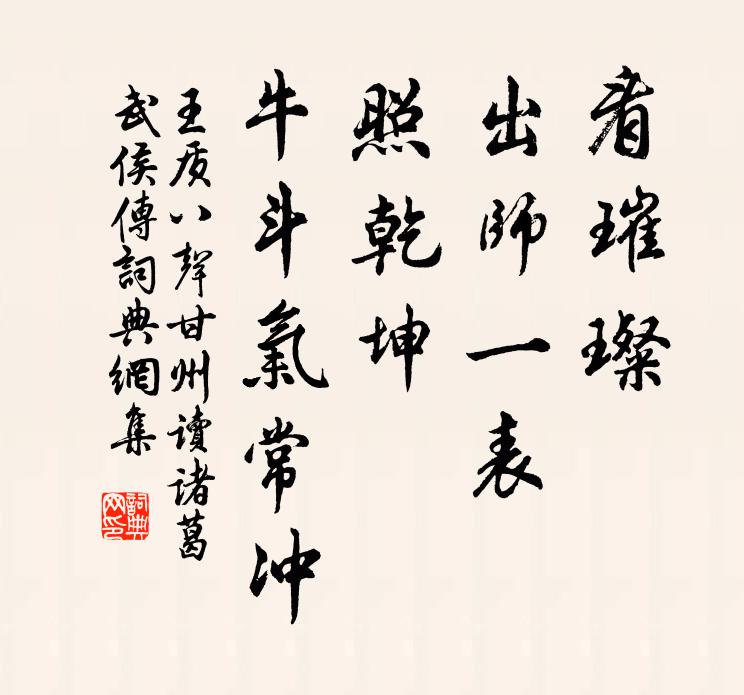 看璀璨
出師一表
照乾坤
牛斗氣常冲
王质八聲甘州讀诸葛
武侯傳詞典網集
詞典网印